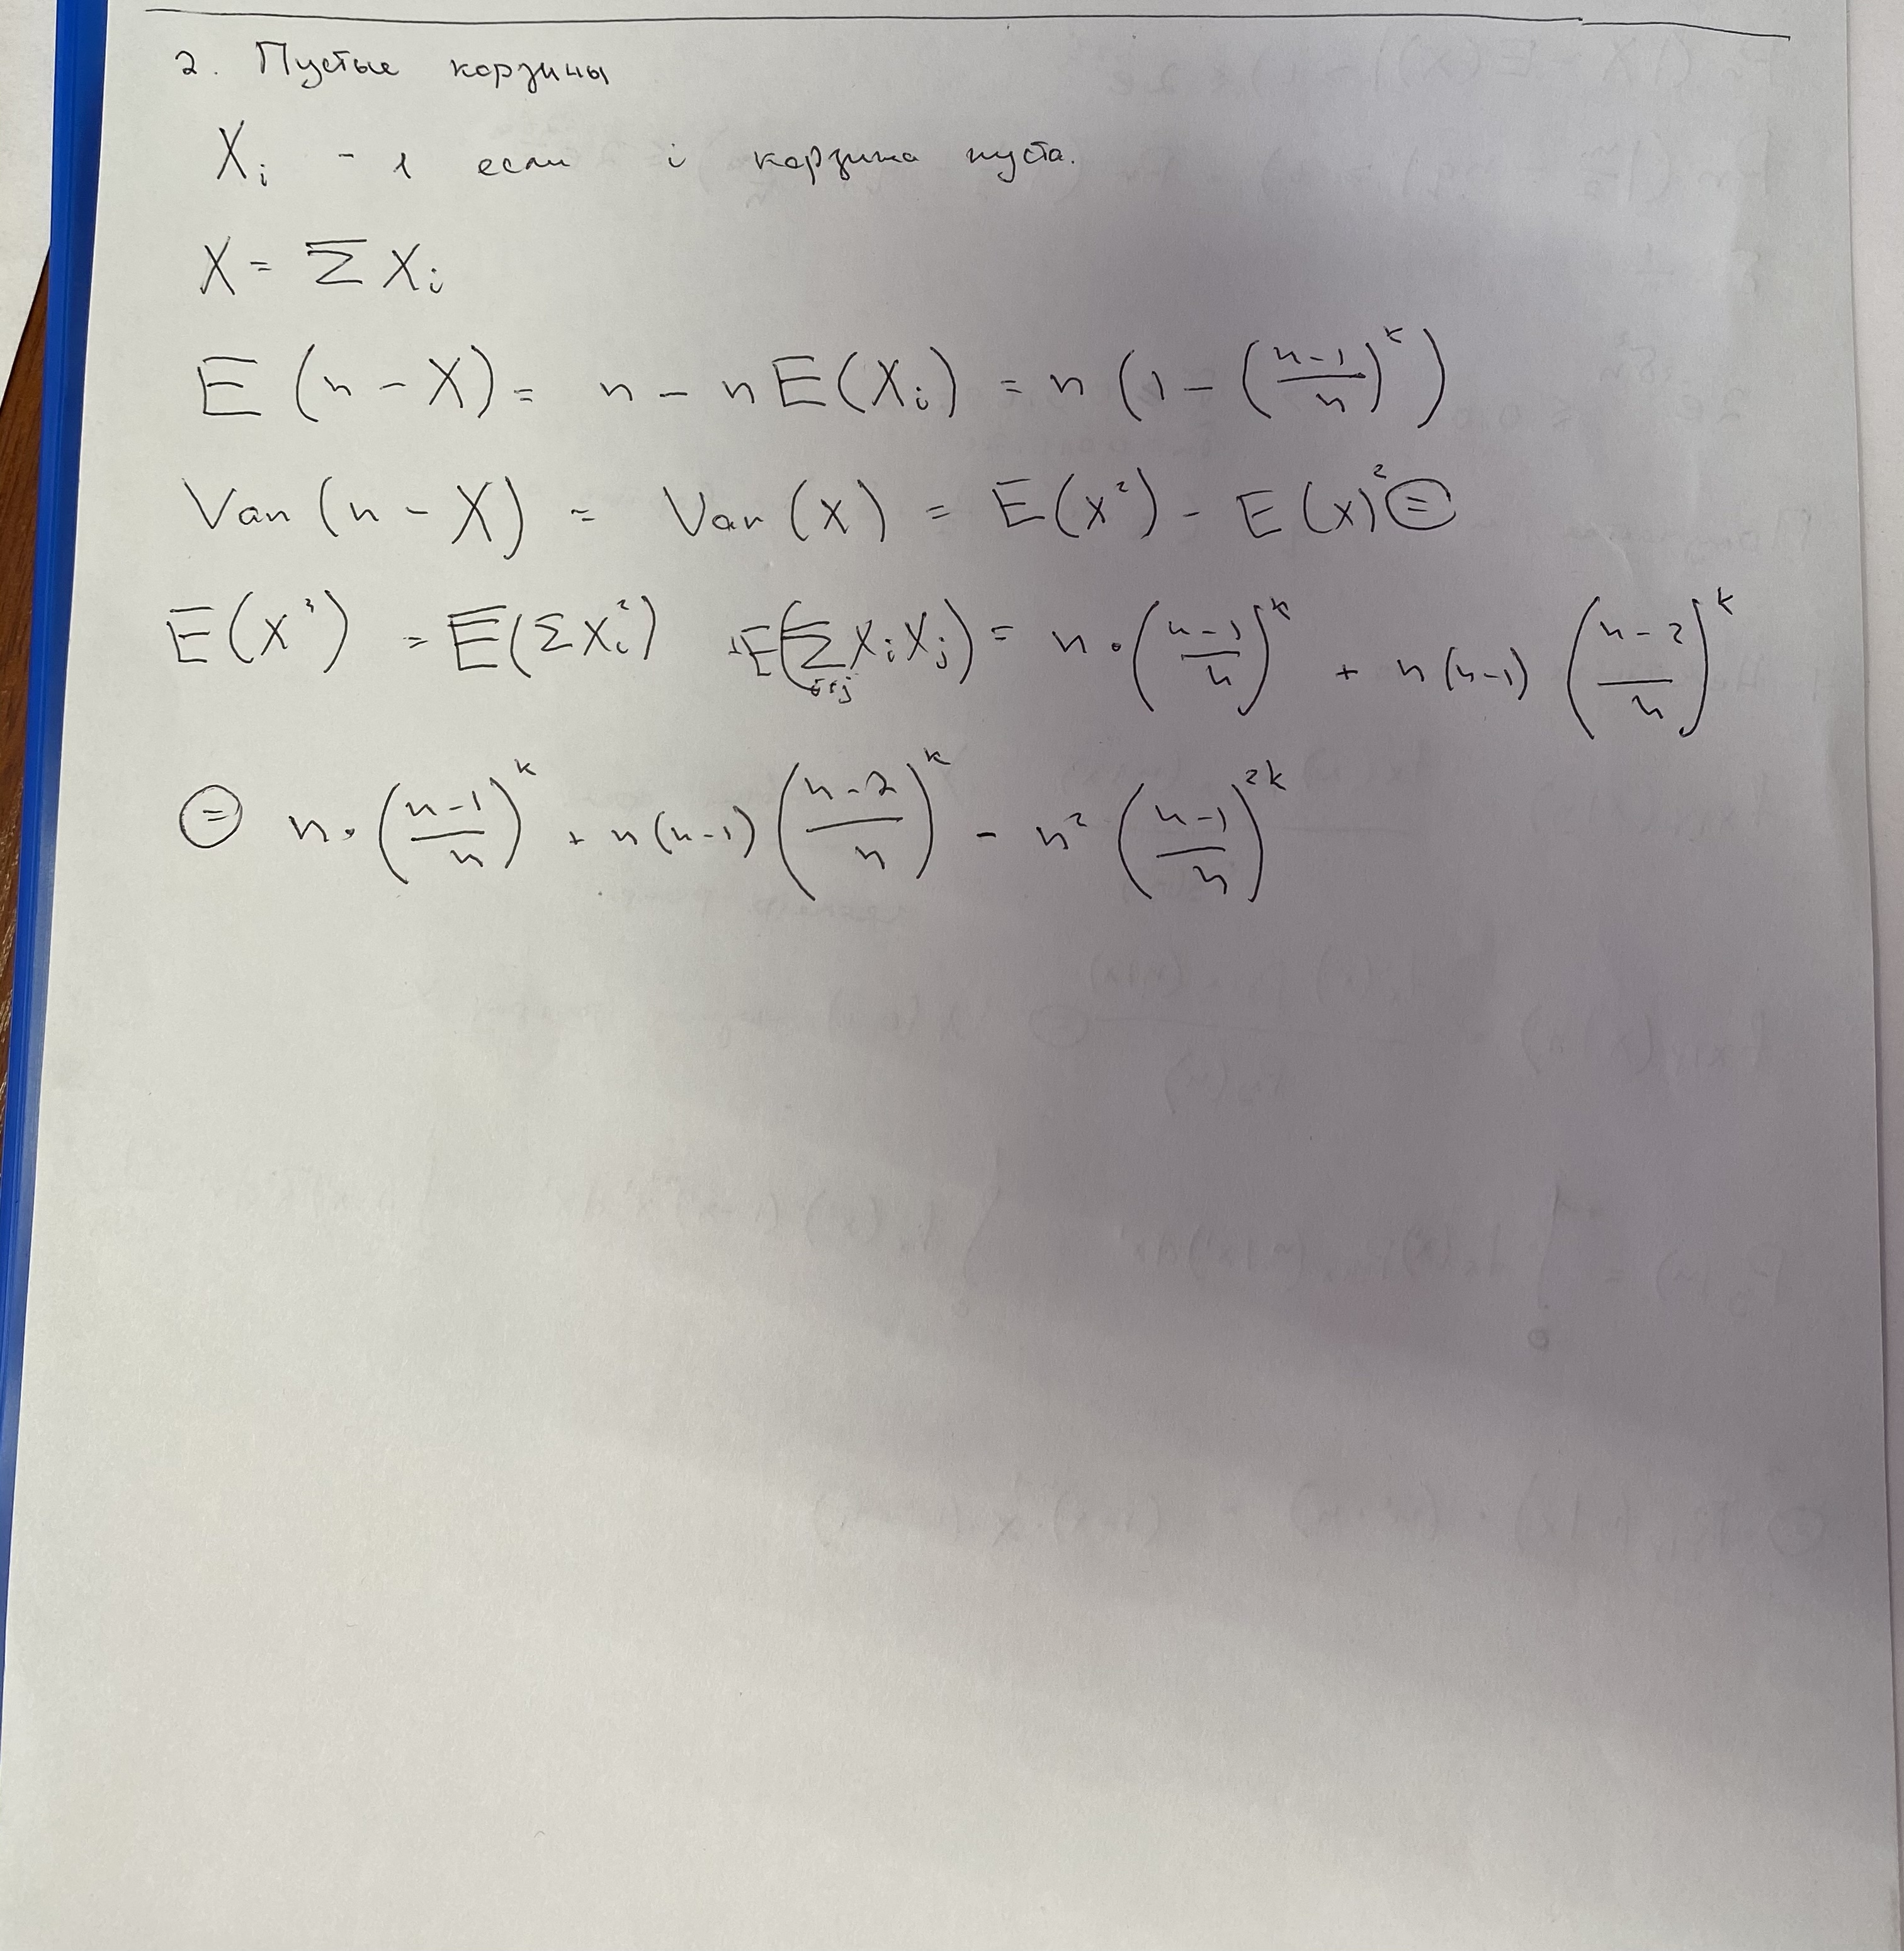 2. Пустые корзины
X_i - 1 если i корзина пуста.
X = Σ X_i
E(n - X) = n - nE(X_i) = n(1 - ((n-1)/n)^k)
Var(n - X) = Var(X) = E(X²) - E(X)² ⊜
E(X²) = E(ΣX_i²) + E(Σ_{i≠j} X_i X_j) = n · ((n-1)/n)^k + n(n-1) ((n-2)/n)^k
⊜ n · ((n-1)/n)^k + n(n-1) ((n-2)/n)^k - n² ((n-1)/n)^{2k}